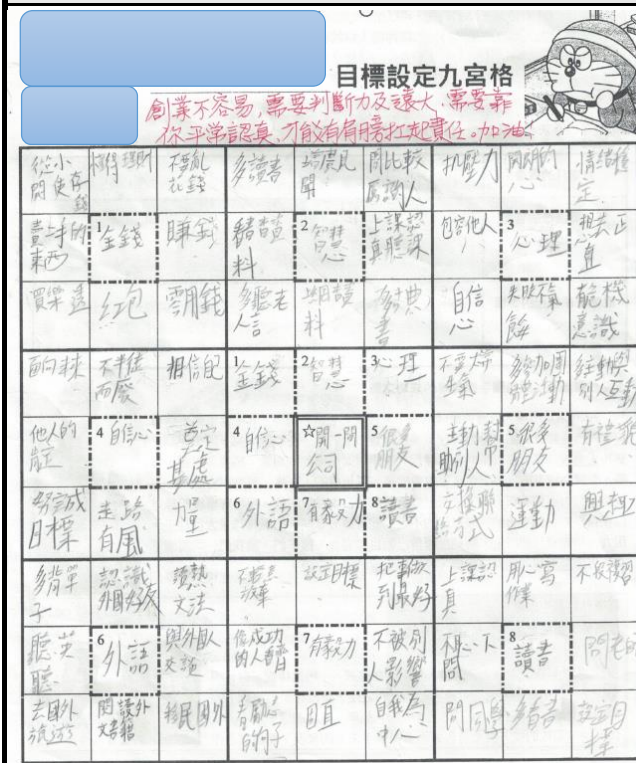 目標設定九宮格
創業不容易,需要判斷力及遠大,需要靠
你平常認真,才能有肩膀扛起責任。加油
從小開始存錢 懂得理財 不要亂花錢 多讀書 增廣見聞 問比較厲害的人 抗壓力 開朗的心 情緒穩定
賣二手的東西 1 金錢 賺錢 豬查資料 2 智慧 上課認真聽課 包容他人 3 心理 想法正直
買樂透 紅包 零用錢 多聽老人言 上網查資料 多讀書 自信心 失敗不氣餒 危機意識
面對未來 不半徒而廢 相信自己 1 金錢 2 智慧 3 心理 不要常生氣 參加團體活動 主動與別人互動
他人的肯定 4 自信心 4 自信心 ☆開一間公司 5 很多朋友 主動幫助別人 5 很多朋友 有禮貌
努力完成目標 走路有風 力量 6 外語 7 有毅力 8 讀書 交換聯絡方式 運動 興趣
多背單子 認識外國好友 讀熟文法 設定目標 把事做到最好 上課認真 用心寫作業
聽英聽 6 外語 與外國人交談 7 有毅力 不被別人影響 不恥下問 8 讀書
去國外旅遊 閱讀外文書籍 移民國外 看勵志的句子 自我為中心 問同學 多看書 立定目標